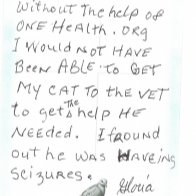 without the help of
ONE HEALTH.ORG
I WOULD NOT HAVE
BEEN ABLE TO GET
MY CAT TO THE VET
to get the help HE
NEEDED. I fround
out he was Haveing
seizures.
Gloria